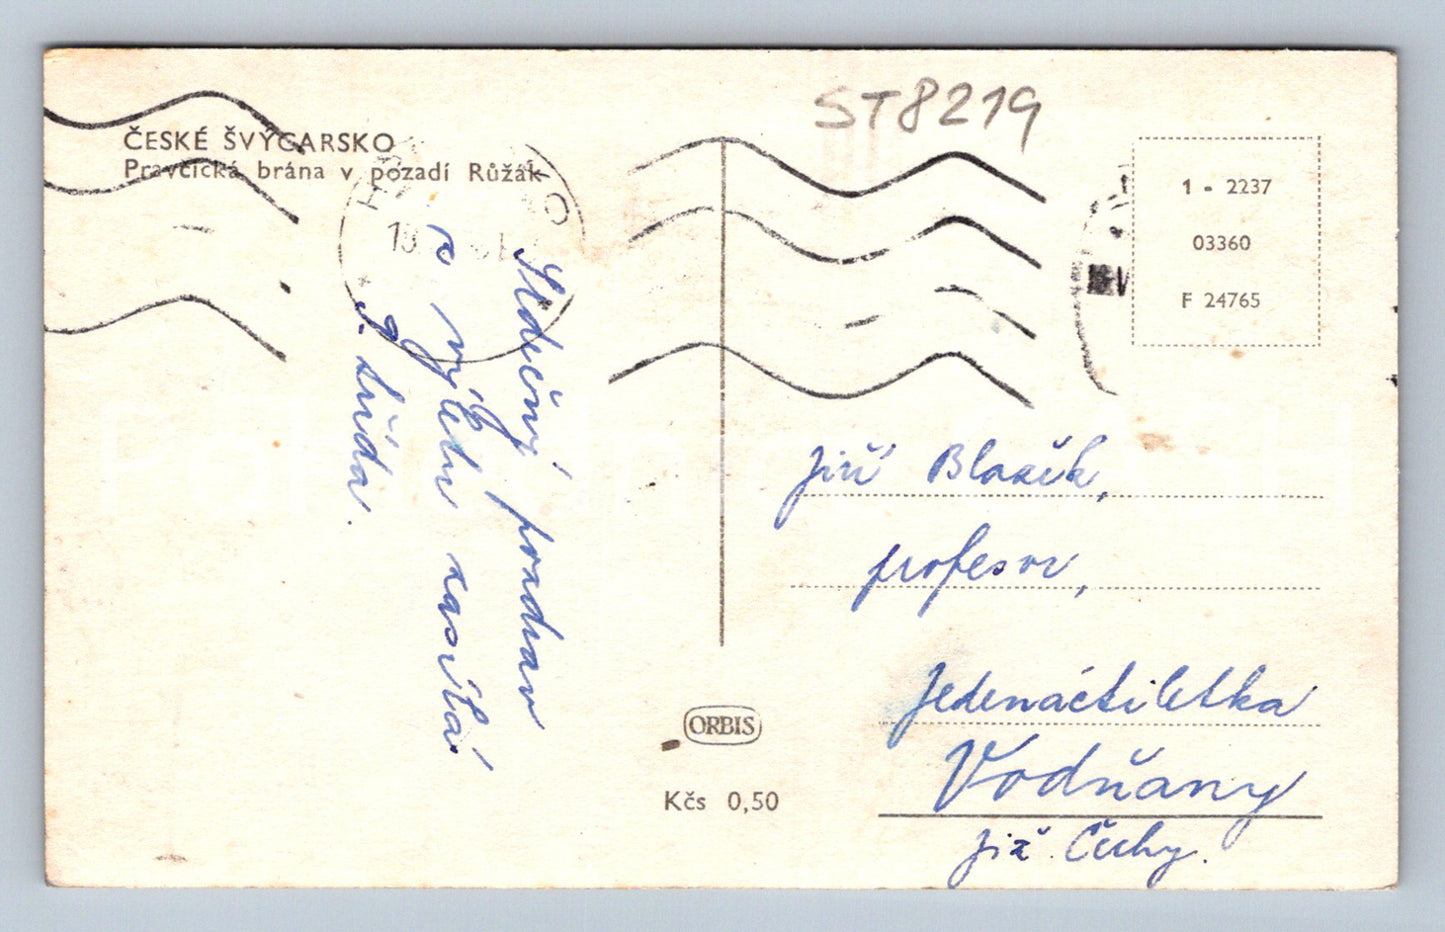 ST8219
ČESKÉ ŠVÝCARSKO
Pravčická brána v pozadí Růžák
1 - 2237
03360
F 24765
Srdečný pozdrav
z výletu zasílá
Lída.
Jiří Blažek,
profesor,
Jedenáctiletka
Vodňany
již. Čechy.
ORBIS
Kčs 0,50